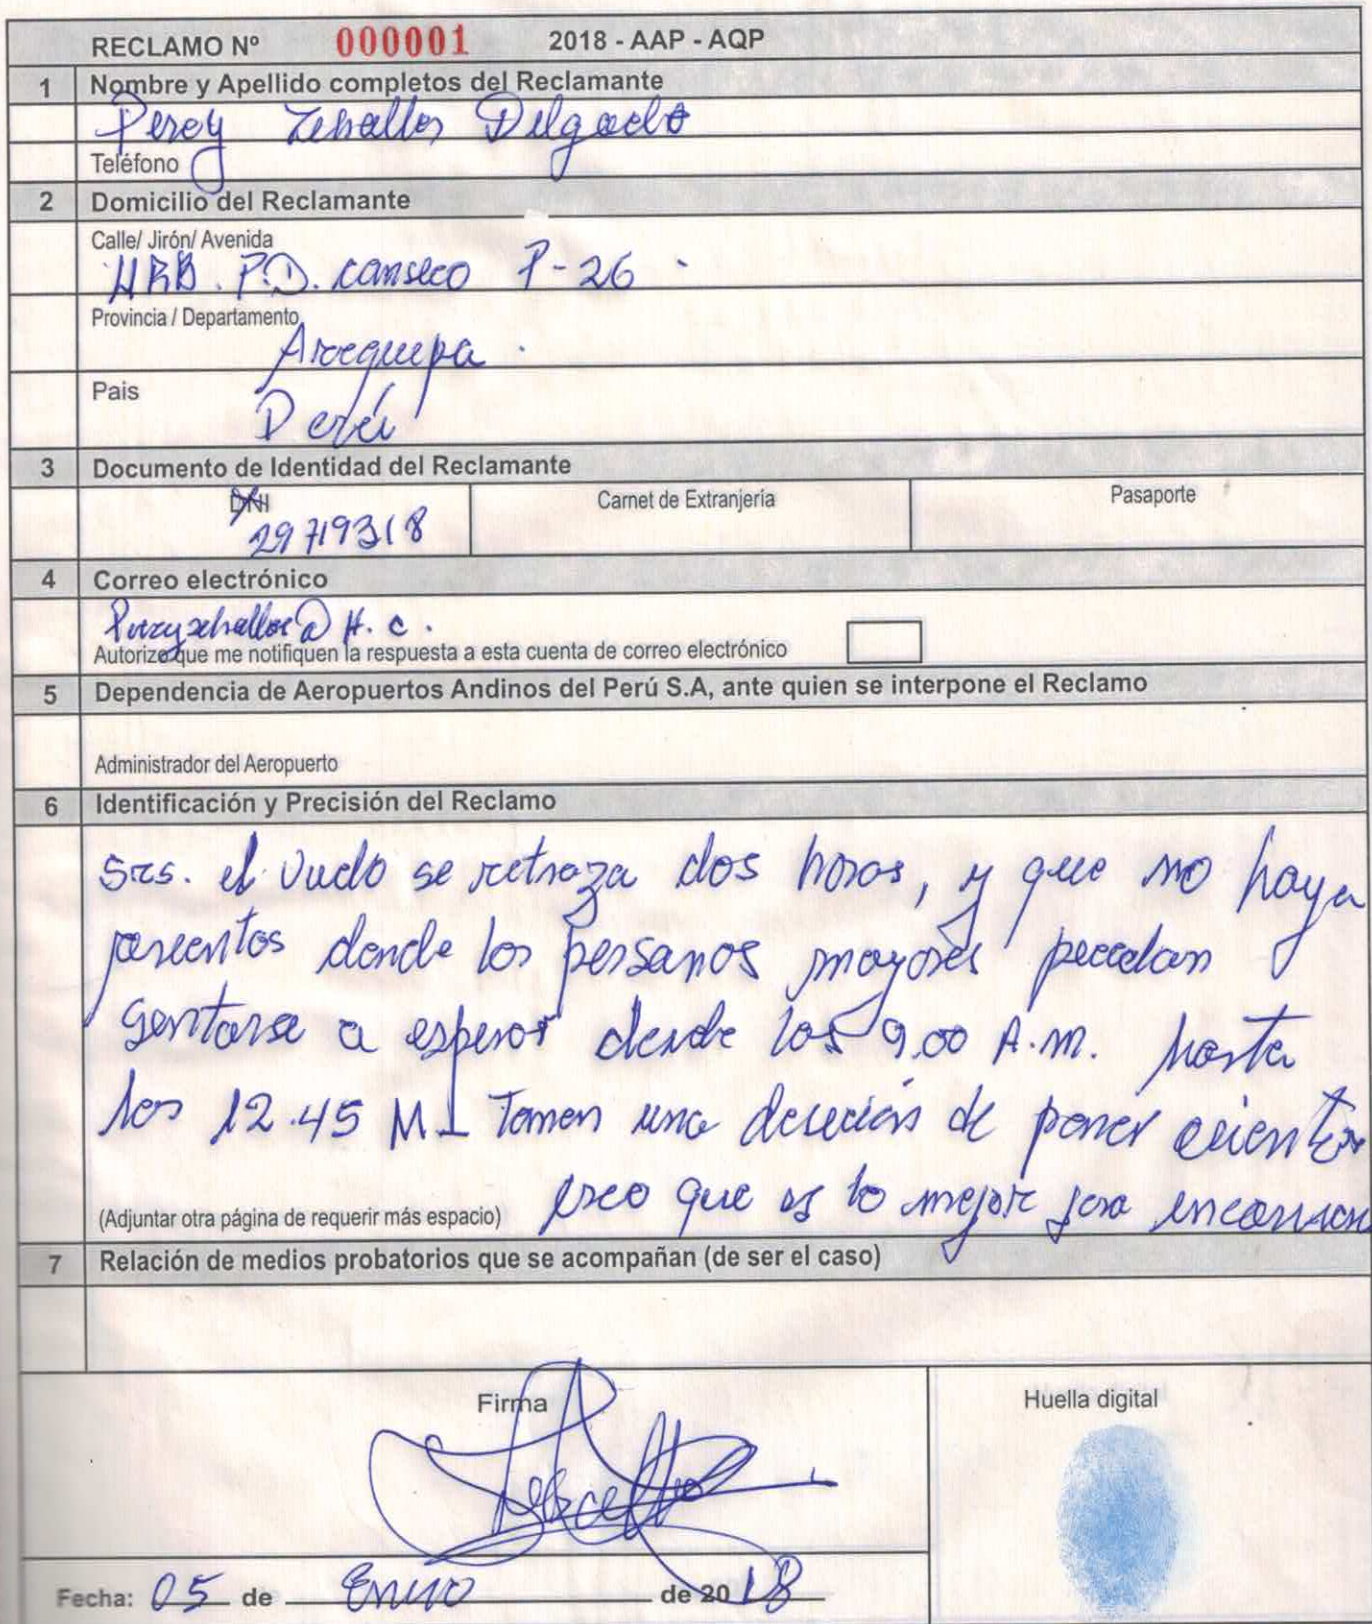 RECLAMO Nº 000001 2018 - AAP - AQP
1 Nombre y Apellido completos del Reclamante
Percy Zeballos Delgado
Teléfono
2 Domicilio del Reclamante
Calle/ Jirón/ Avenida
URB. P.D. canseco P-26
Provincia / Departamento
Arequipa.
Pais
Perú
3 Documento de Identidad del Reclamante
DNI Carnet de Extranjeria Pasaporte
29719318
4 Correo electrónico
Percyzeballos@ H. C.
Autorizo que me notifiquen la respuesta a esta cuenta de correo electrónico
5 Dependencia de Aeropuertos Andinos del Perú S.A, ante quien se interpone el Reclamo
Administrador del Aeropuerto
6 Identificación y Precisión del Reclamo
Srs. el vuelo se retraza dos horas, y que no haya
donde las personas mayores puedan
sentarse a esperar desde las 9.00 A.M. hasta
las 12.45 M. Tomen una de poner
creo que es lo mejor
(Adjuntar otra página de requerir más espacio)
7 Relación de medios probatorios que se acompañan (de ser el caso)
Firma
Huella digital
Fecha: 05 de Enero de 2018